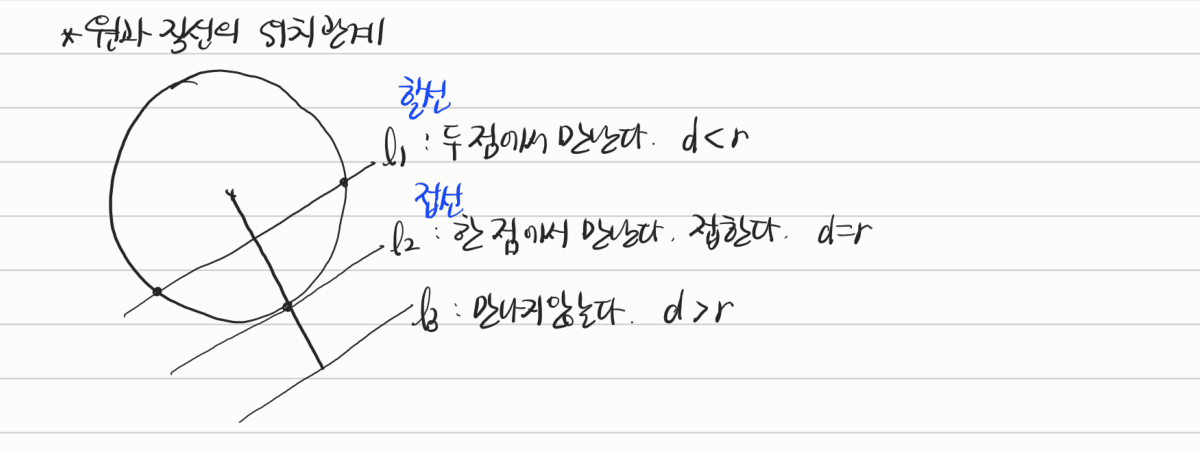 *원과 직선의 위치관계
할선
l₁ : 두 점에서 만난다. d<r
접선
l₂ : 한 점에서 만난다. 접한다. d=r
l₃ : 만나지않는다. d>r